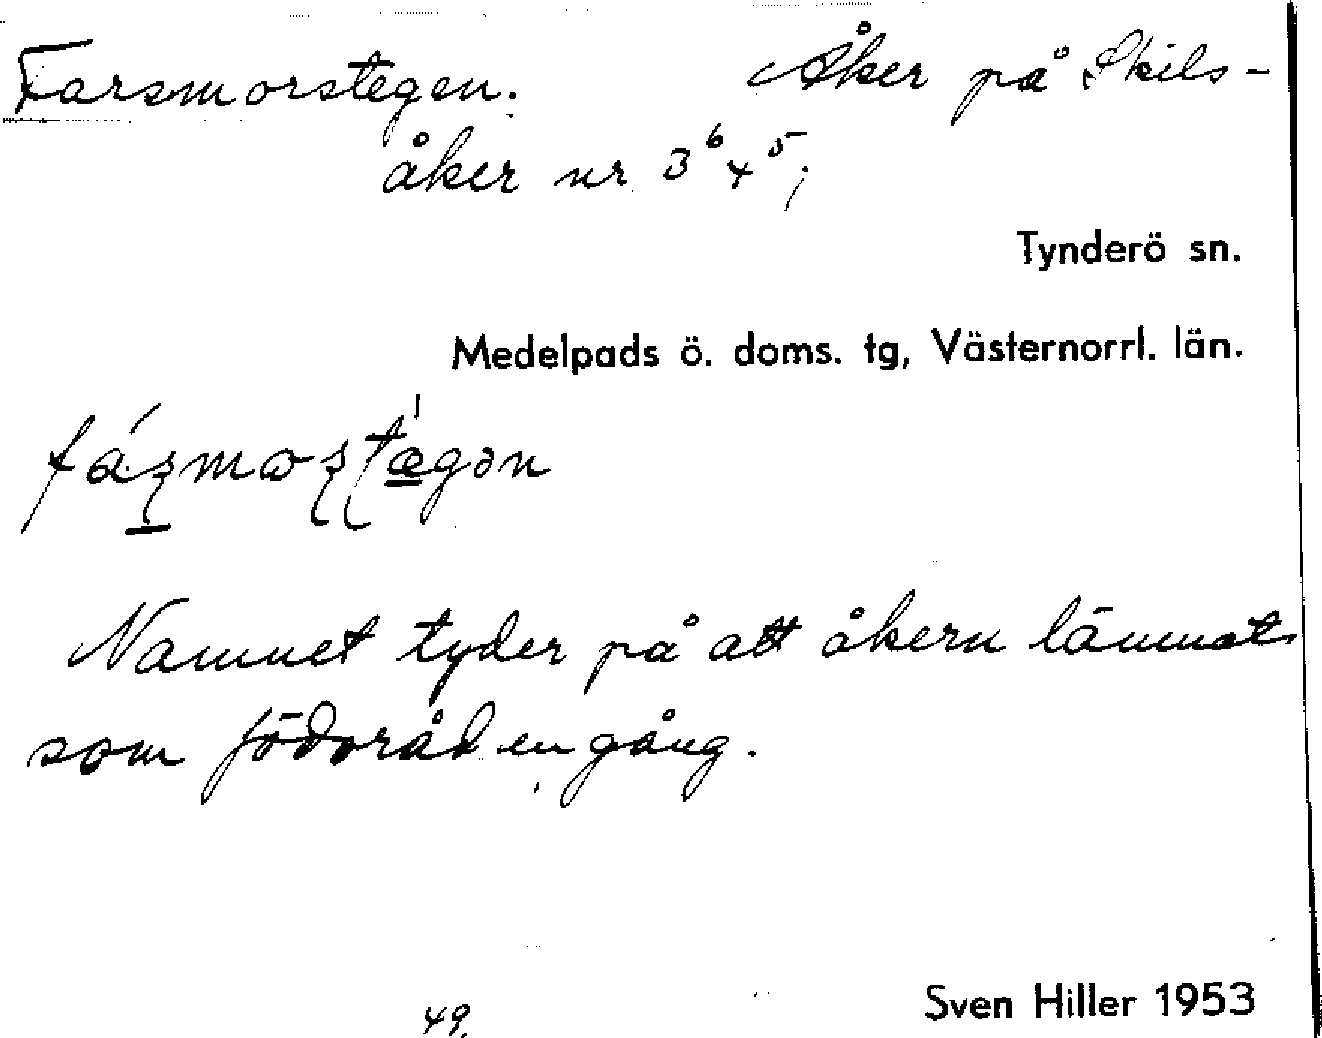 Farsmorstegen. Åker på Skils-
åker nr 3⁶ 4⁵;
Tynderö sn.
Medelpads ö. doms. tg, Västernorrl. län.
Namnet tyder på att åkern lämnats
som födoråd en gång.
49.
Sven Hiller 1953